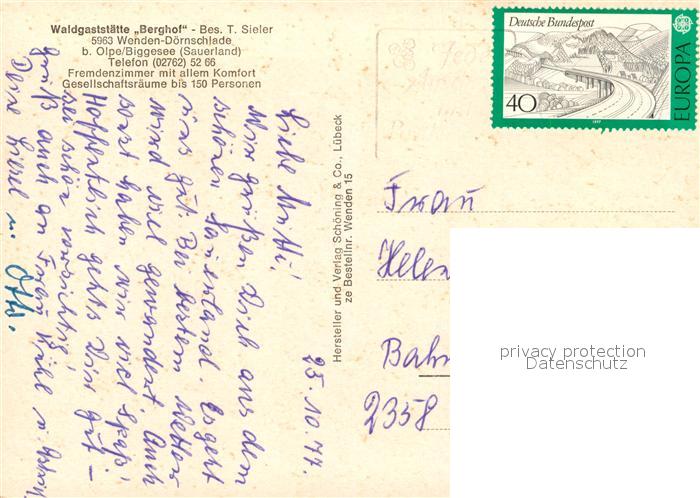 Waldgaststätte „Berghof“ - Bes. T. Sieler
5963 Wenden-Dörnschlade
b. Olpe/Biggesee (Sauerland)
Telefon (02762) 52 66
Fremdenzimmer mit allem Komfort
Gesellschaftsräume bis 150 Personen
25.10.77.
Liebe Mutti!
Wir grüßen Dich aus dem
schönen Sauerland. Es geht
uns gut. Bei bestem Wetter
wird viel gewandert. Auch
sonst haben wir viel Spaß!
Hoffentlich gehts Dir gut –
sei schön vorsichtig!
Gruß auch an Frau
Deine Liesel u. Otto.
Hersteller und Verlag Schöning & Co., Lübeck
ze Bestellnr. Wenden 15
Deutsche Bundespost
40
EUROPA
1977
Frau
Helen
Bahn
2358
privacy protection
Datenschutz